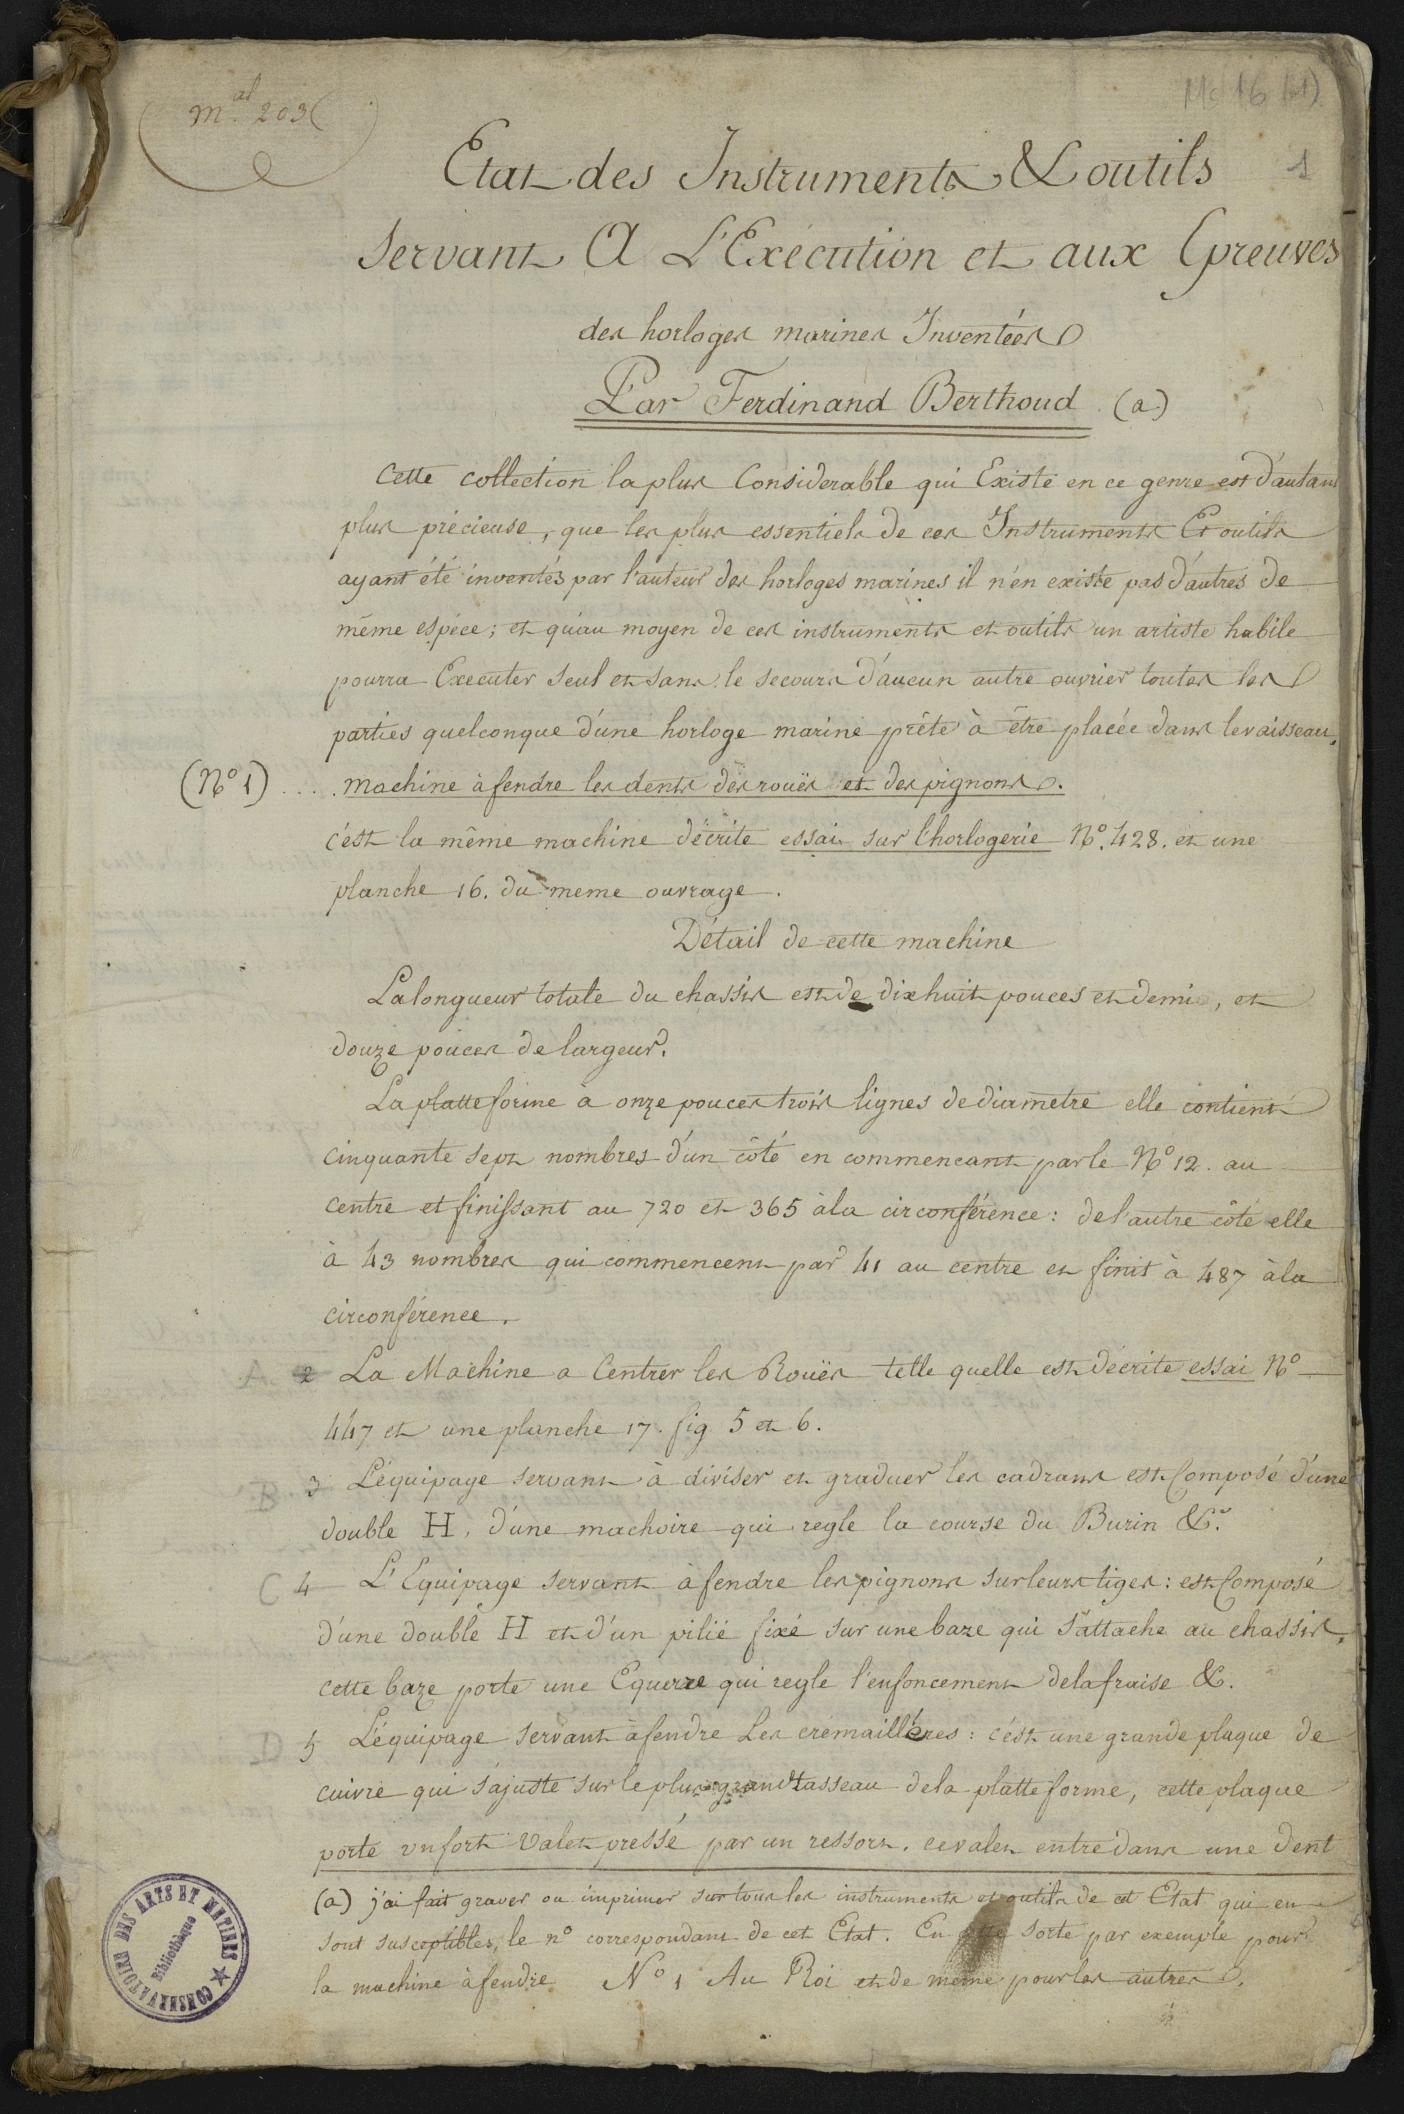 m.al 203
Ms 16 (1)
1
Etat des Instruments & outils
servant A L'Exécution et aux Epreuves
des horloges marines Inventées
Par Ferdinand Berthoud (a)
Cette collection la plus Considerable qui Existe en ce genre est d'autant
plus précieuse, que les plus essentiels de ces Instruments Et outils
ayant été inventés par l'auteur des horloges marines il n'en existe pas d'autres de
même espéce; et qu'au moyen de ces instruments et outils un artiste habile
pourra Executer seul et sans le secours d'aucun autre ouvrier toutes les
parties quelconque d'une horloge marine prête à être placée dans le vaisseau.
(N° 1) .... machine à fendre les dents des rouës et des pignons.
c'est la même machine décrite essai sur l'horlogerie N°. 428. et une
planche 16. du meme ouvrage.
Détail de cette machine
La longueur totale du chassis est de dixhuit pouces et demi, et
douze pouces de largeur.
La platte forme à onze pouces trois lignes de diametre elle contient
cinquante sept nombres d'un côté en commencant par le N° 12. au
centre et finissant au 720 et 365 à la circonférence: de l'autre côté elle
à 43 nombres qui commencent par 41 au centre et finit à 487 à la
circonférence.
2 La Machine a Centrer les Rouës telle quelle est décrite essai N°
447 et une planche 17. fig 5 et 6.
3 L'équipage servant à diviser et graduer les cadrans est Composé d'une
double H, d'une machoire qui regle la course du Burin &c.
4 L'Equipage servant à fendre les pignons sur leurs tiges: est Composé
d'une double H et d'un pilié fixé sur une baze qui s'attache au chassis,
cette baze porte une Equerre qui regle l'enfoncement de la fraise &c.
5 L'équipage servant à fendre Les crémaillères: c'est une grande plaque de
cuivre qui s'ajuste sur le plus grand tasseau de la platte forme, cette plaque
porte un fort valet pressé par un ressort. ce valet entre dans une dent
(a) j'ai fait graver ou imprimer sur tous les instruments et outils de cet Etat qui en
sont susceptibles, le n° correspondant de cet Etat. En cette sorte par exemple pour
la machine à fendre N° 1 Au Roi et de même pour les autres.
CONSERVATOIRE DES ARTS ET METIERS
Bibliothèque